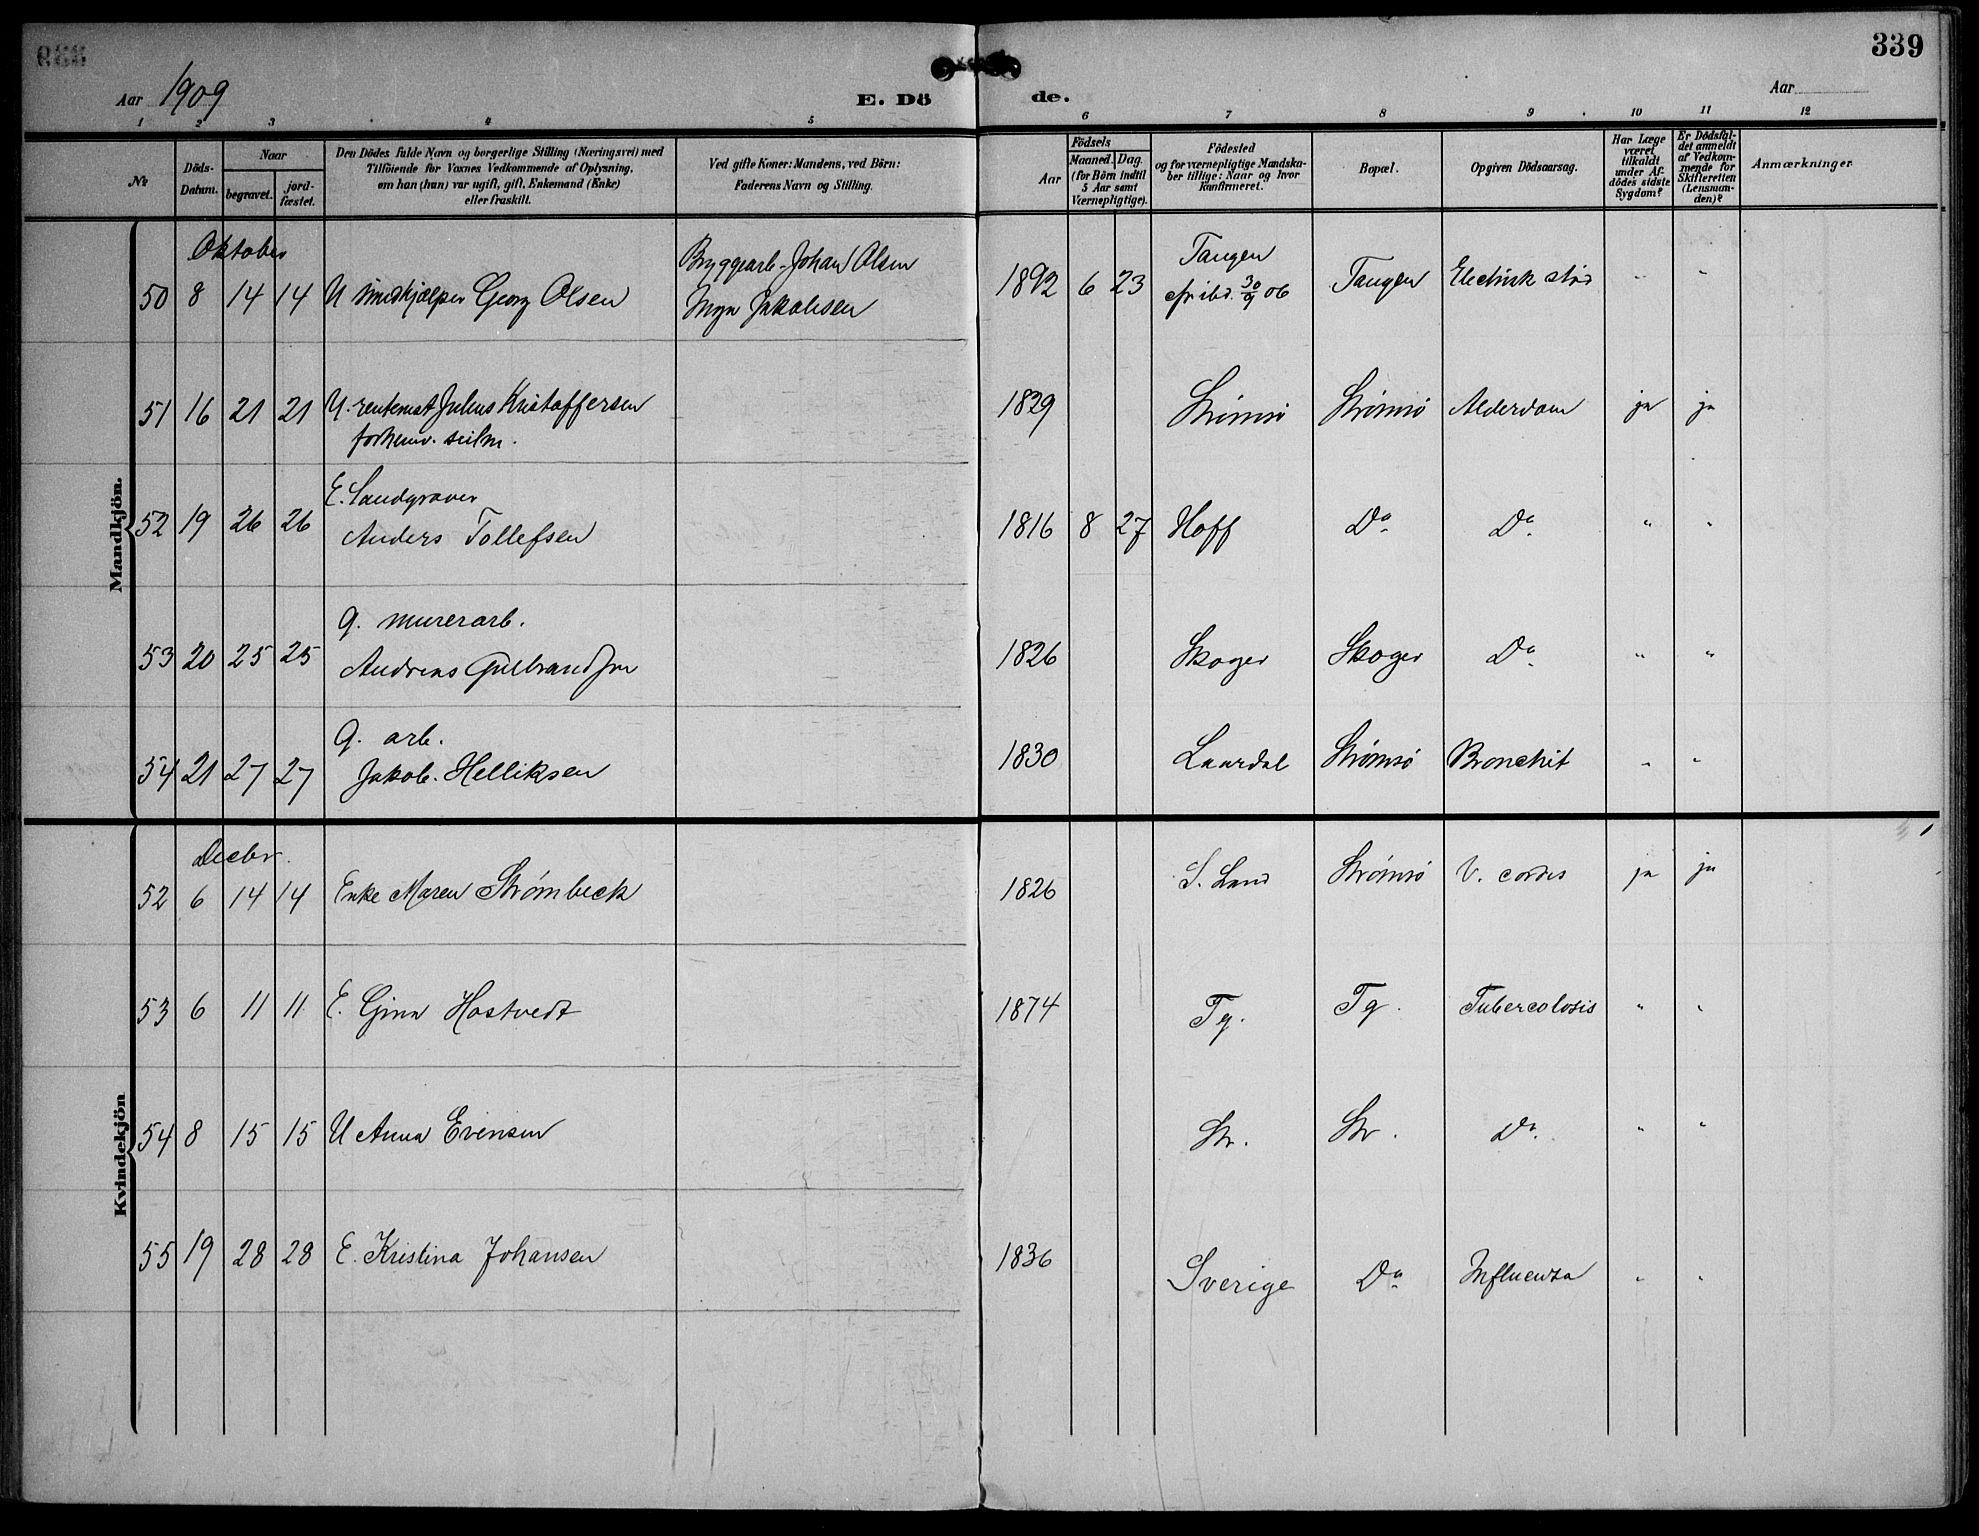 339
Aar 1909
E. Dö de.
Aar
1 2 3 4 5 6 7 8 9 10 11 12
№
Döds-Datum.
Naar
begravet.
jord-fæstet.
Den Dödes fulde Navn og borgerlige Stilling (Næringsvei) med
Tilföiende for Voxnes Vedkommende af Oplysning,
om han (hun) var ugift, gift, Enkemand (Enke)
eller fraskilt.
Ved gifte Koner: Mandens, ved Börn:
Faderens Navn og Stilling.
Aar
Födsels
Maaned. Dag.
(for Börn indtil
5 Aar samt
Værnepligtige).
Födested
og for værnepligtige Mandska-
ber tillige: Naar og hvor
Konfirmeret.
Bopæl.
Opgiven Dödsaarsag.
Har Læge
været
tilkaldt
under Af-
dödes sidste
Sygdom?
Er Dödsfal-
det anmeldt
af Vedkom-
mende for
Skifteretten
(Lensman-
den)?
Anmærkninger
Mandkjön.
Oktober
50 8 14 14 U smedhjælper Georg Olsen
Bryggearb. Johan Olsen
Jakobsen
1892 6 23 Tangen
ibd. 30/9 06
Tangen Electrisk stød " "
51 16 21 21 U. rentenist Julius Kristoffersen
forhenv. seilm.
1829 Strømsø Strømsø Alderdom ja ja
52 19 26 26 E. Sandgraver
Anders Tollefsen
1816 8 27 Hoff Do Do " "
53 20 25 25 g. murerarb.
Andreas Gulbrandsen
1826 Skoger Skoger Do " "
54 21 27 27 g. arb.
Jakob Helliksen
1830 Laurdal Strømsø Bronchit " "
Kvindekjön
Decbr.
52 6 14 14 Enke Maren Strømbeck 1826 S. Land Strømsø V. cordis ja ja
53 6 11 11 E. Gina Hostvedt 1874 Tg. Tg. Tubercolosis " "
54 8 15 15 U Anna Evensen Str. Str. Do " "
55 19 28 28 E. Kristina Johansen 1836 Sverige Do Influenza " "